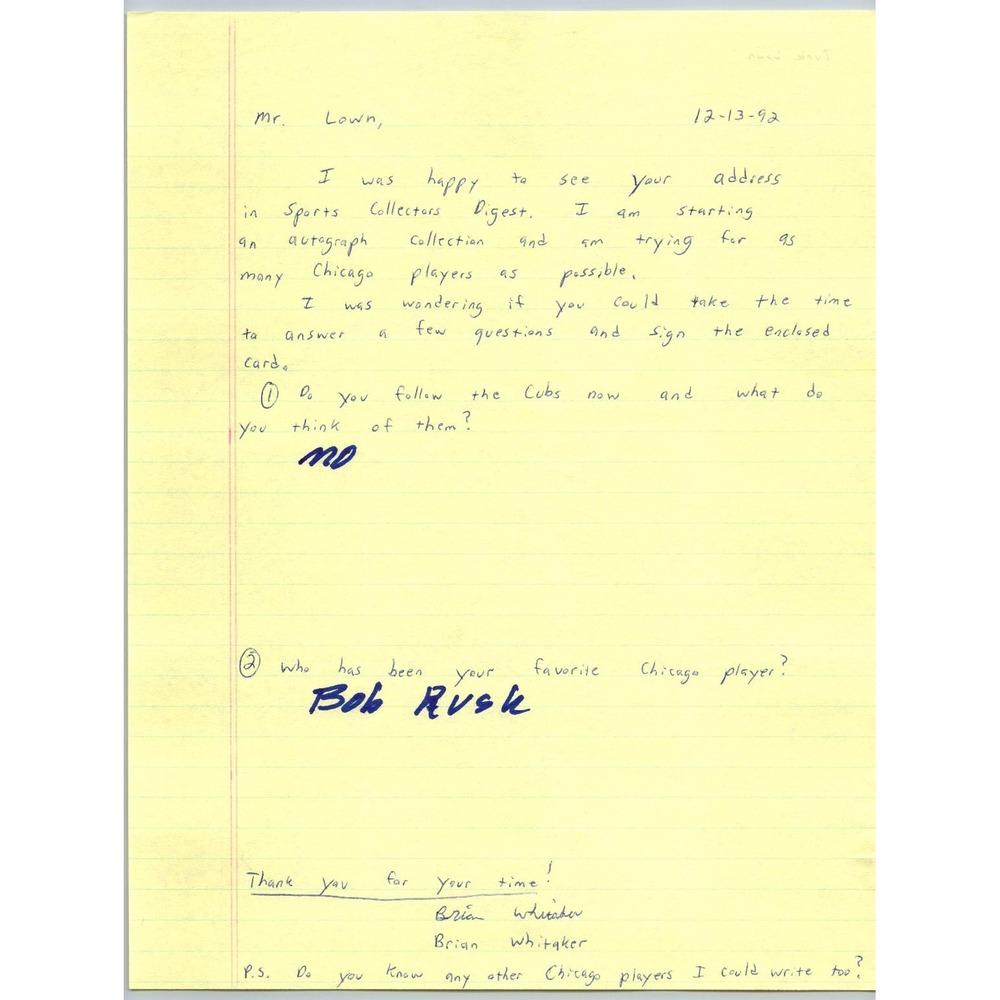 Mr. Lown, 12-13-92
I was happy to see your address
in Sports Collectors Digest. I am starting
an autograph collection and am trying for as
many Chicago players as possible.
I was wondering if you could take the time
to answer a few questions and sign the enclosed
card.
① Do you follow the Cubs now and what do
you think of them?
NO
② Who has been your favorite Chicago player?
Bob Rusk
Thank you for your time!
Brian Whitaker
Brian Whitaker
P.S. Do you know any other Chicago players I could write too?